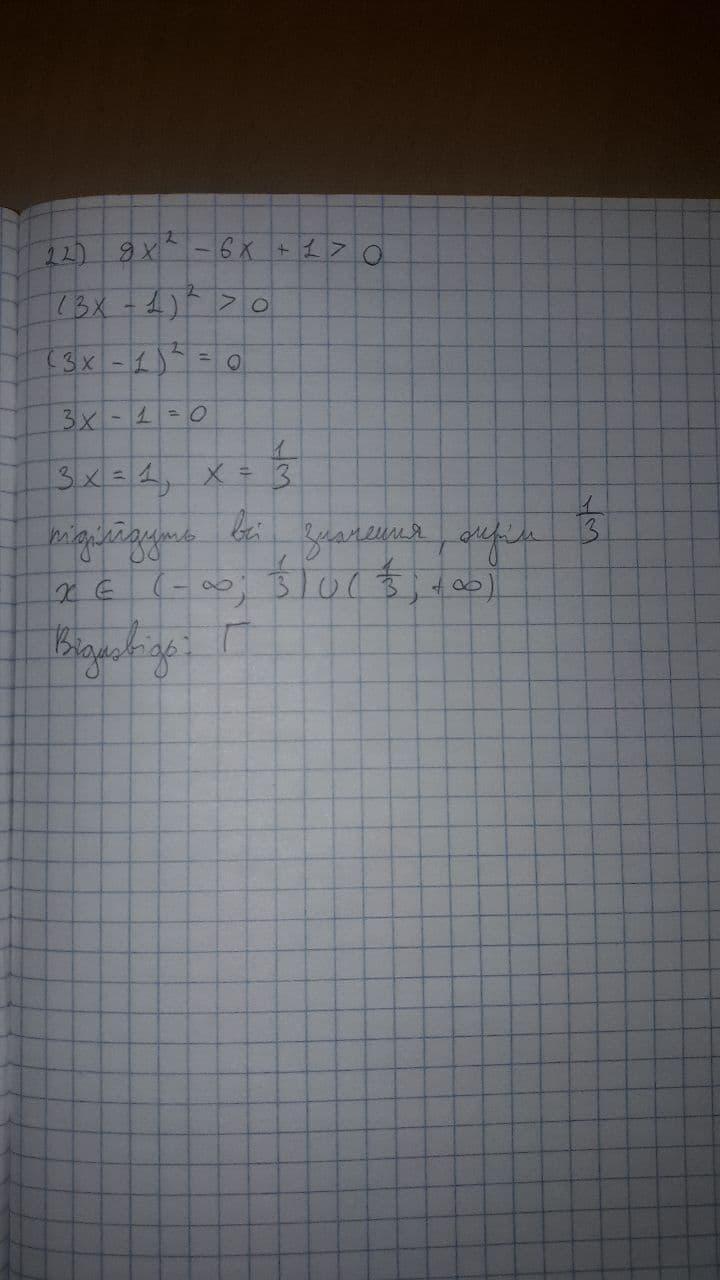 22) 9x² - 6x + 1 > 0
(3x - 1)² > 0
(3x - 1)² = 0
3x - 1 = 0
3x = 1, x = 1/3
підійдуть всі значення, окрім 1/3
x ∈ (-∞; 1/3) ∪ (1/3; +∞)
Відповідь: Г